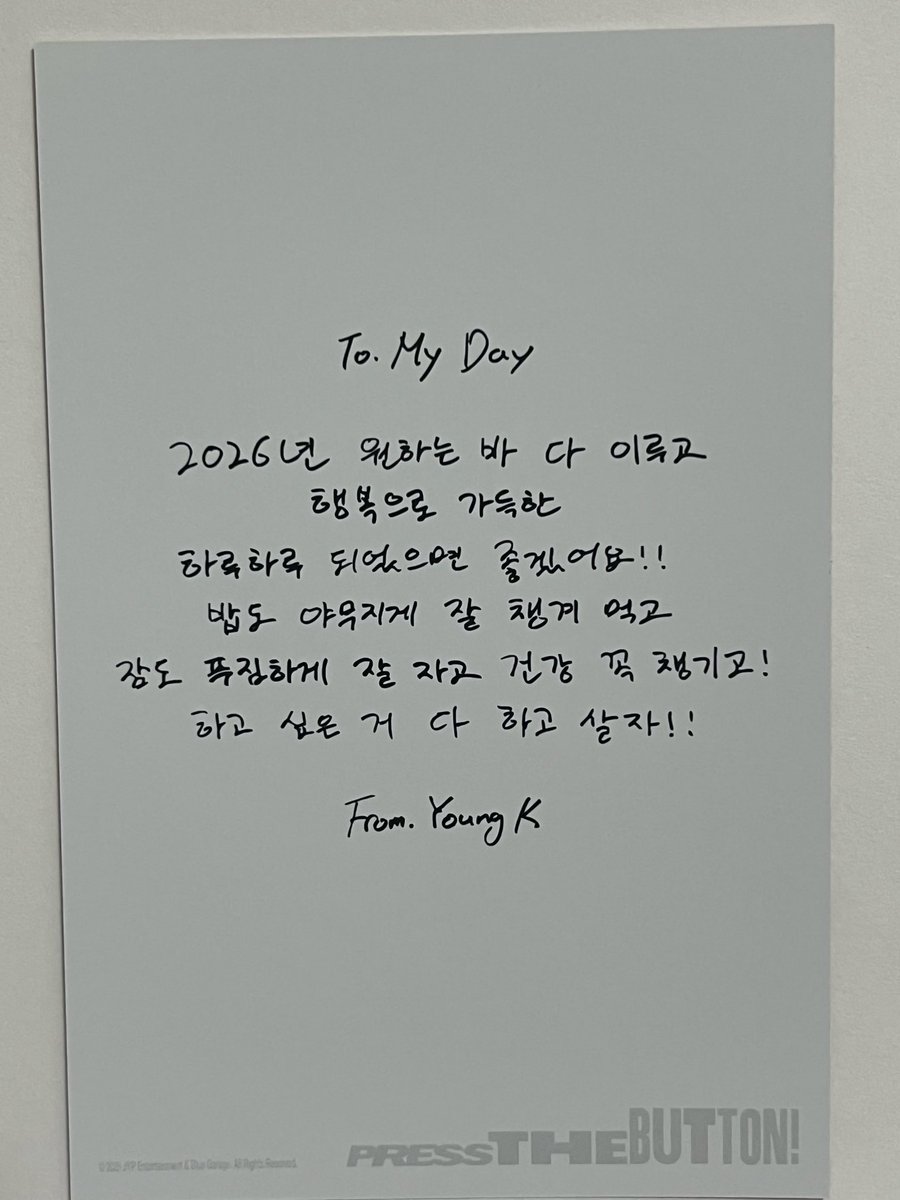 To. My Day
2026년 원하는 바 다 이루고
행복으로 가득한
하루하루 되었으면 좋겠어요!!
밥도 야무지게 잘 챙겨 먹고
잠도 푹짐하게 잘 자고 건강 꼭 챙기고!
하고 싶은 거 다 하고 살자!!
From. Young K
© 2025 JYP Entertainment & Blue Garage. All Rights Reserved.
PRESS THE BUTTON!